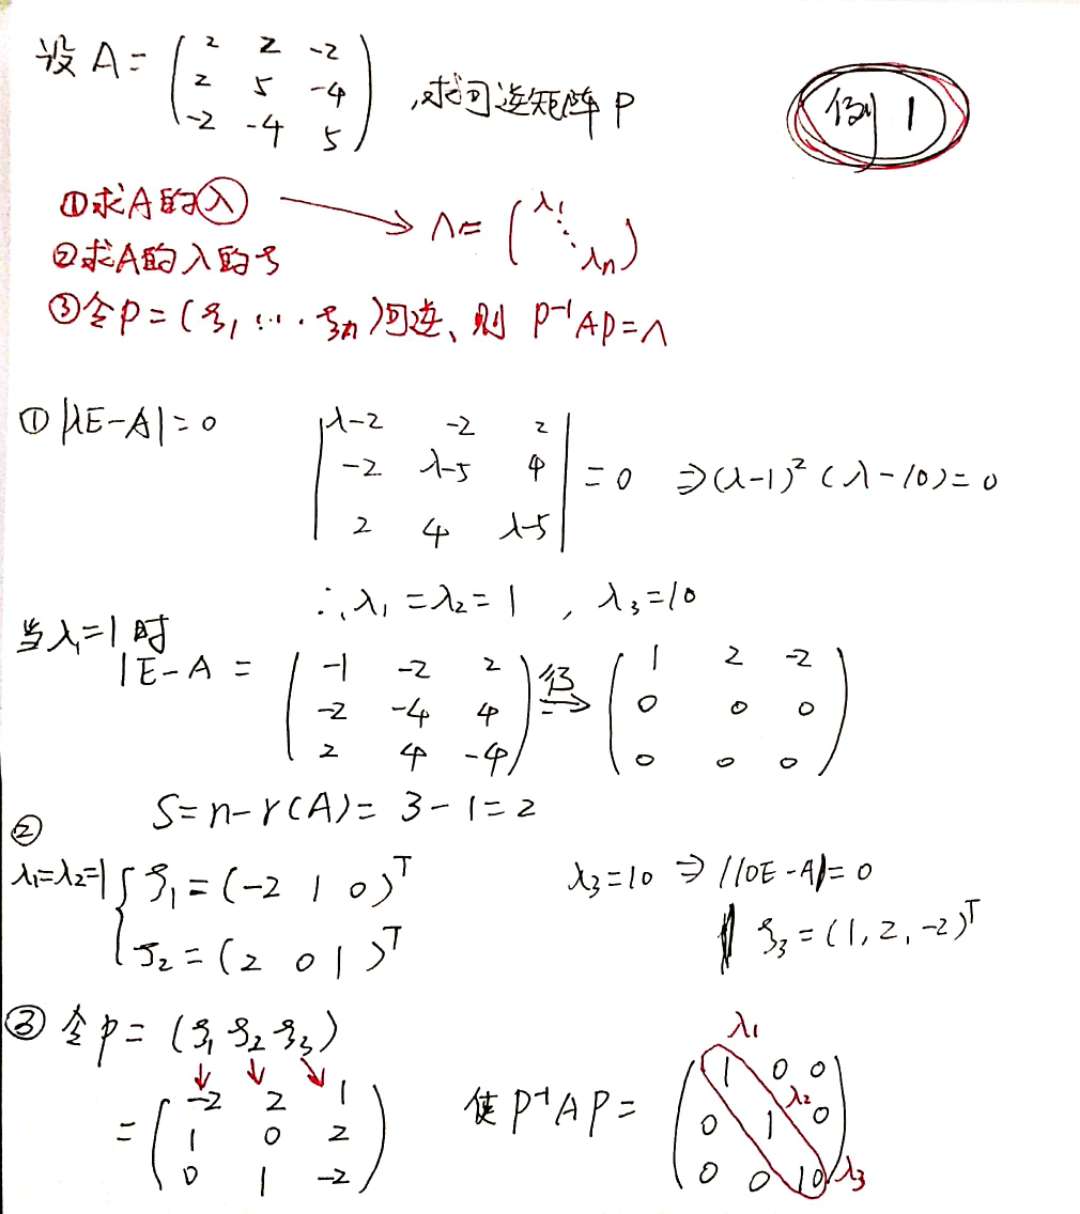 设 A = ( 2 2 -2
2 5 -4
-2 -4 5 ) ,求可逆矩阵 P
例 1
①求A的λ → Λ = ( λ1 ⋱ λn )
②求A的λ的ξ
③令P = (ξ1 ... ξn)可逆、则 P⁻¹AP = Λ
① |λE-A| = 0
| λ-2 -2 2
-2 λ-5 4
2 4 λ-5 | = 0 ⇒ (λ-1)² (λ-10) = 0
∴ λ1 = λ2 = 1 , λ3 = 10
当λ1=1 时
1E-A = ( -1 -2 2
-2 -4 4
2 4 -4 ) 得→ ( 1 2 -2
0 0 0
0 0 0 )
S = n-r(A) = 3-1 = 2
②
λ1=λ2=1 { ξ1 = (-2 1 0)ᵀ
ξ2 = (2 0 1)ᵀ
λ3 = 10 ⇒ |10E-A| = 0
ξ3 = (1, 2, -2)ᵀ
③ 令 P = (ξ1 ξ2 ξ3)
= ( -2 2 1
1 0 2
0 1 -2 )
使 P⁻¹AP = ( 1 0 0
0 1 0
0 0 10 )
λ1
λ2
λ3